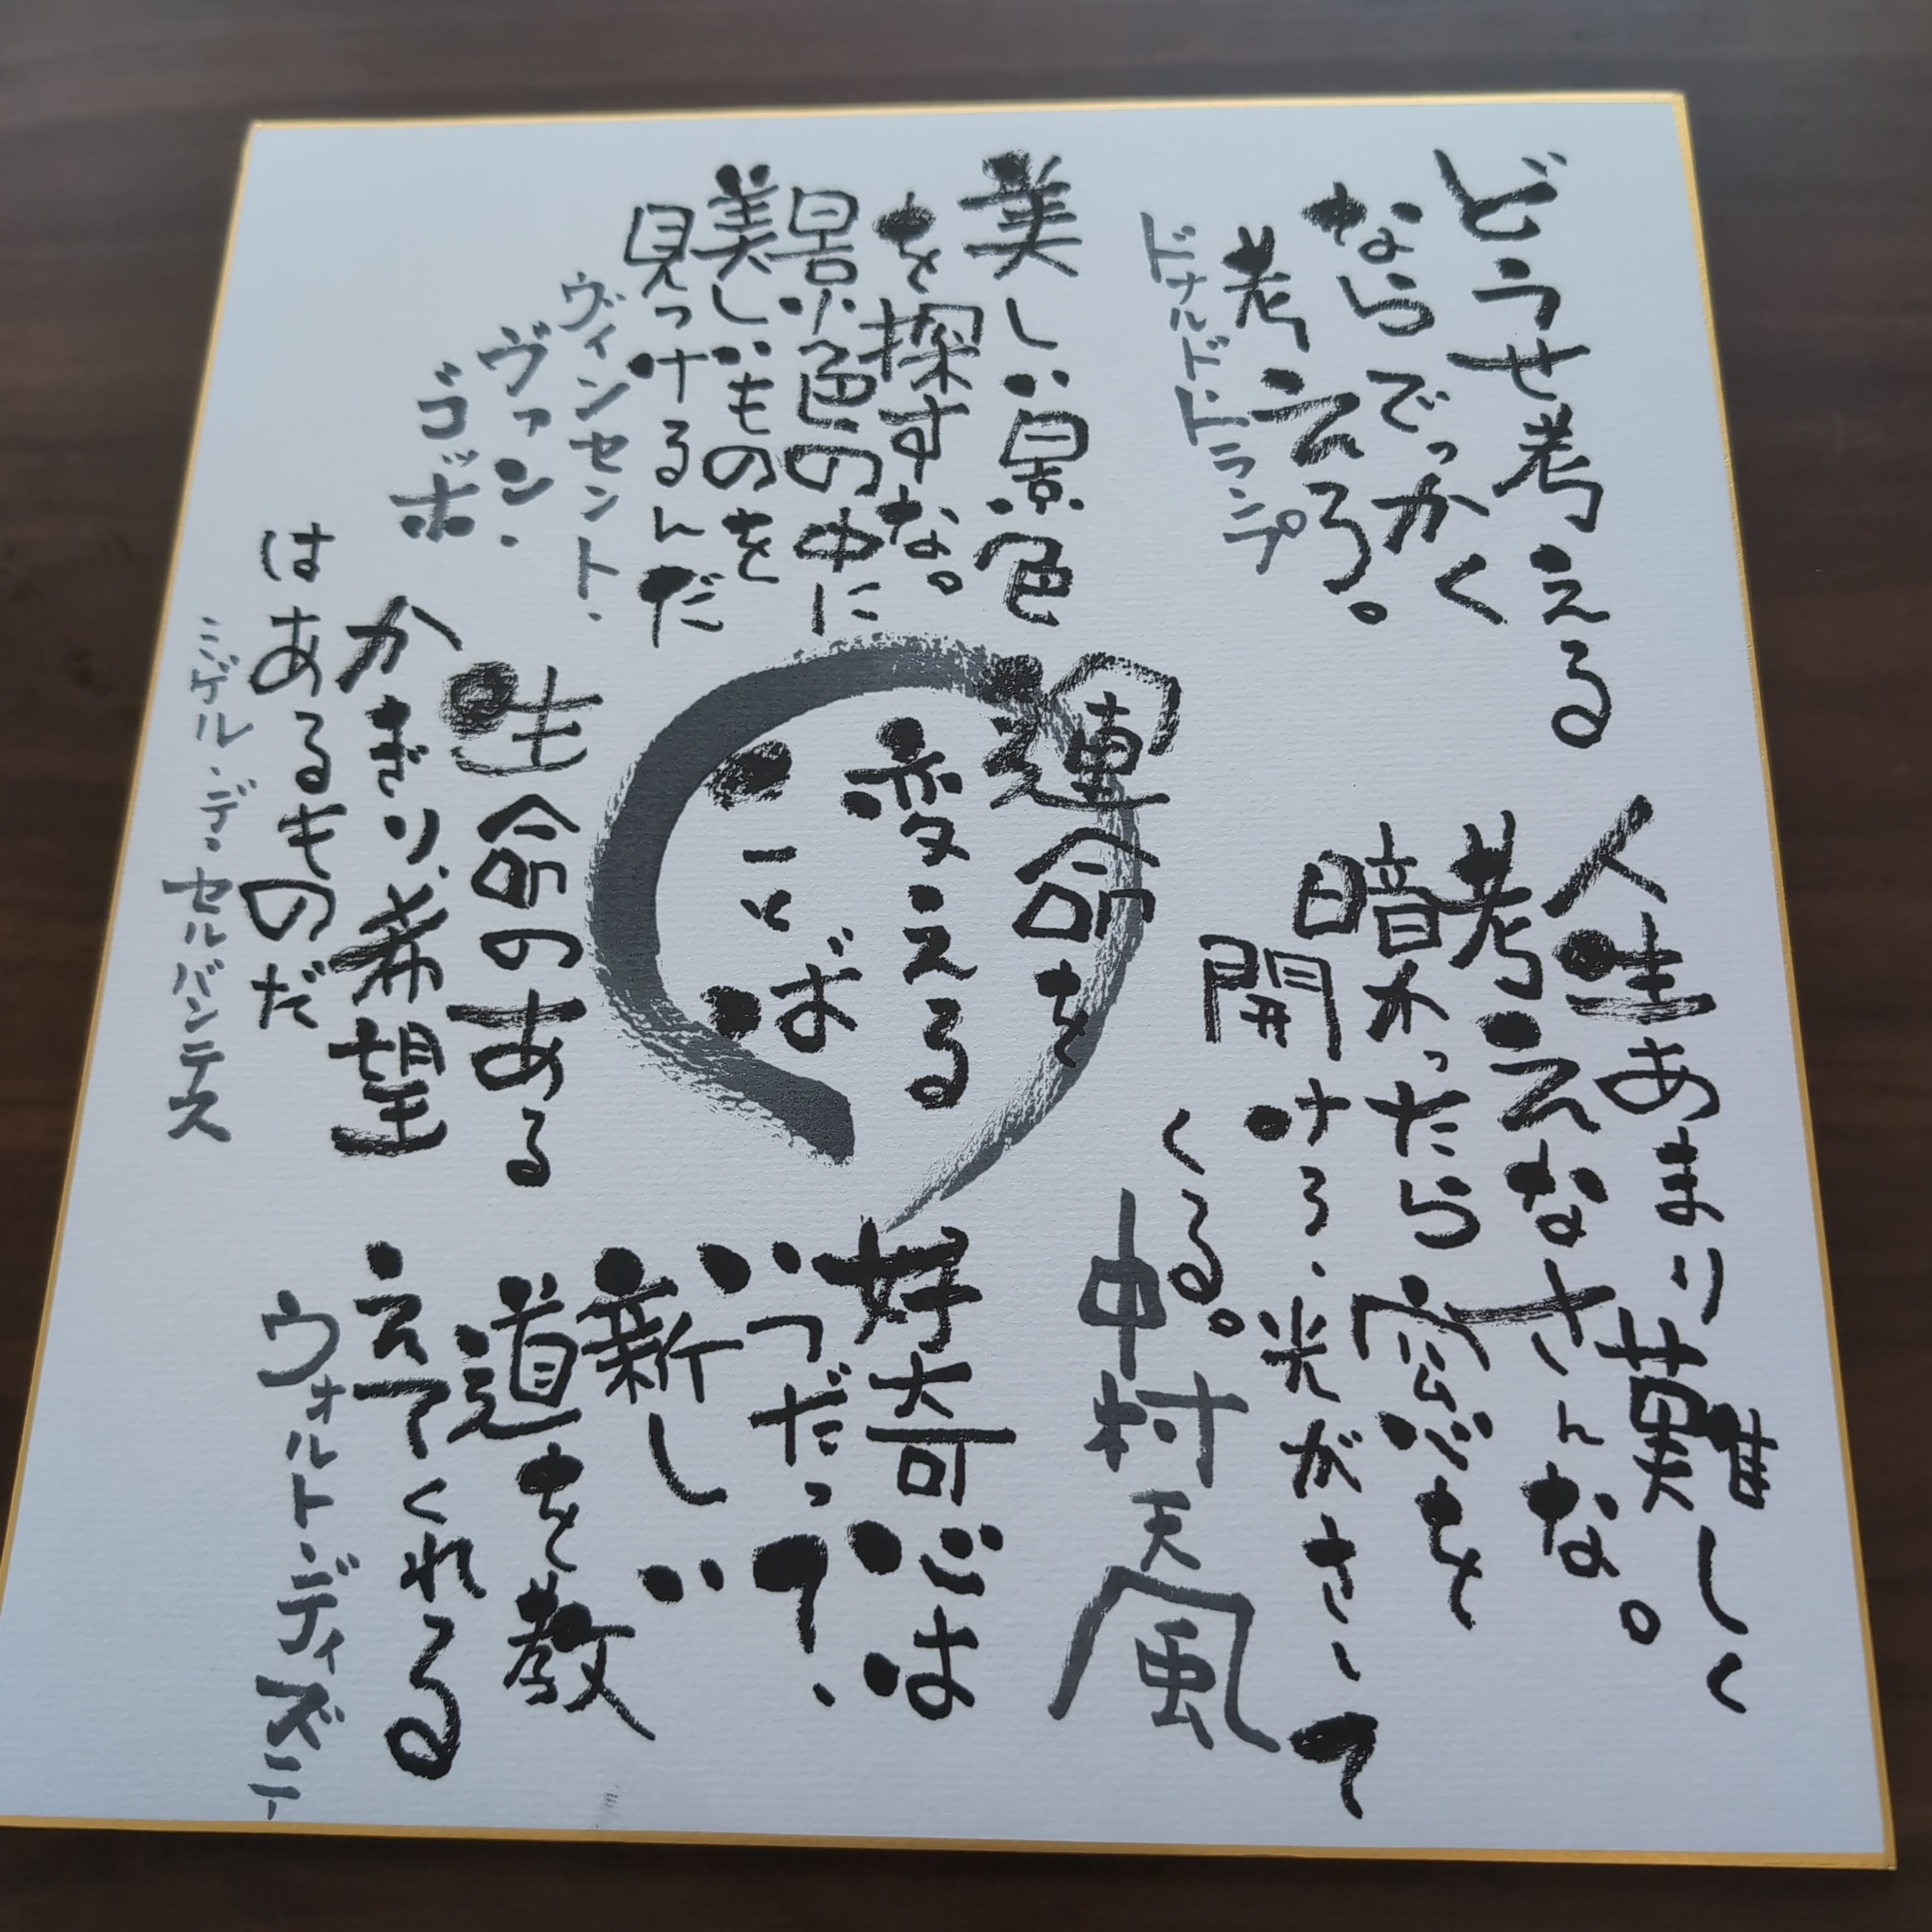 どうせ考える
ならでっかく
考えろ。
ドナルド・トランプ
美しい景色
を探すな。
景色の中に
美しいものを
見つけるんだ
ヴィンセント・
ヴァン・
ゴッホ
運命を
変える
ことば
人生あまり難しく
考えなさんな。
暗かったら窓を
開けろ、光がさして
くる。
中村天風
生命のある
かぎり、希望
はあるものだ
ミゲル・デ・セルバンテス
好奇心は
いつだって、
新しい
道を教
えてくれる
ウォルト・ディズニー